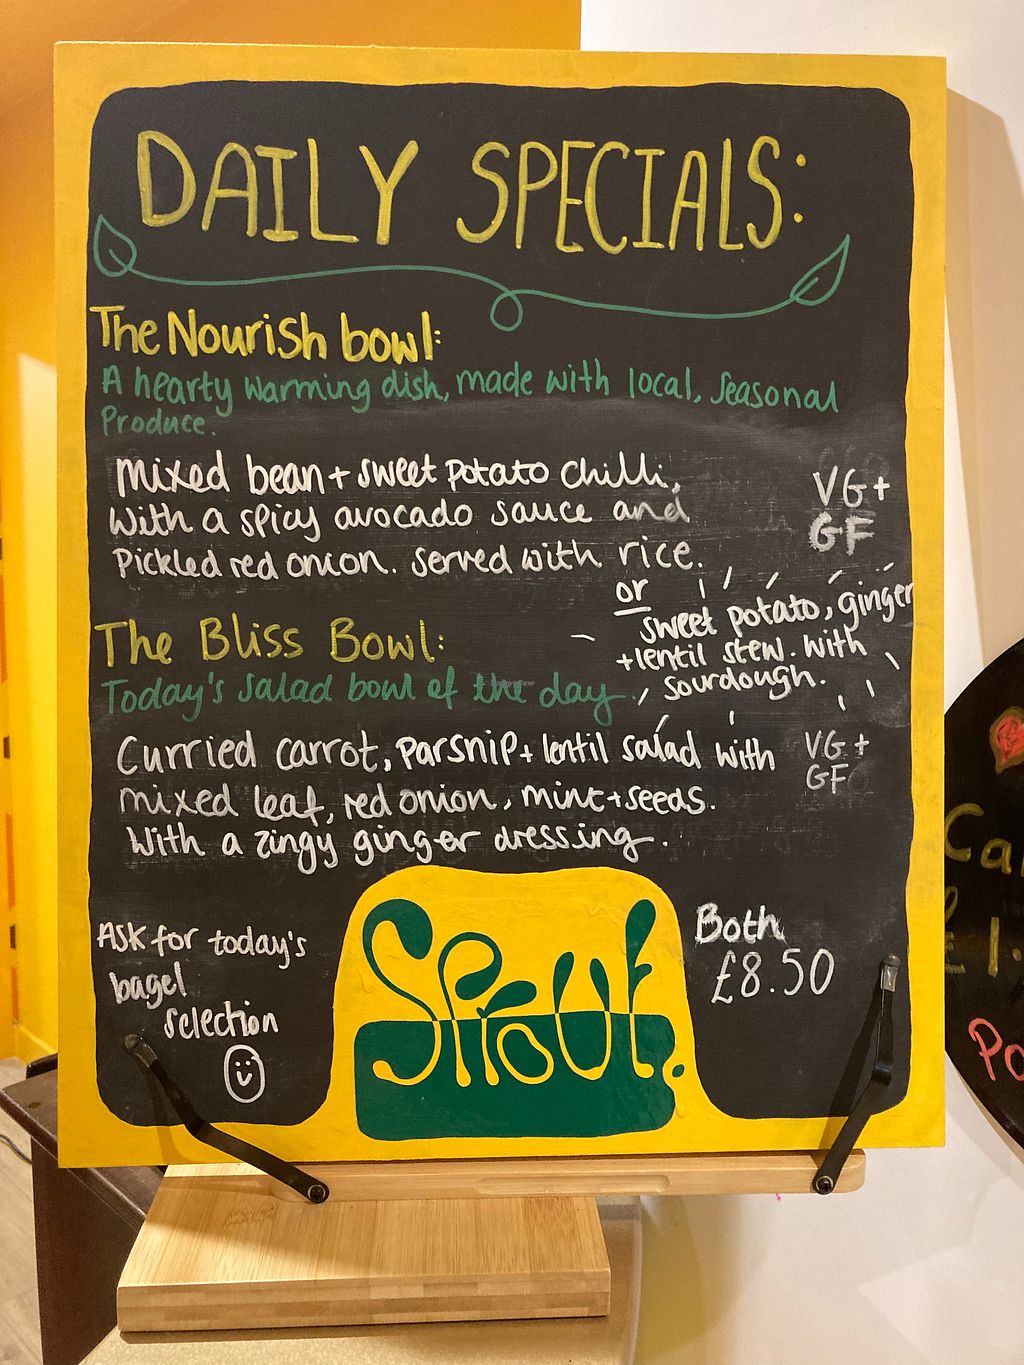 DAILY SPECIALS:
The Nourish bowl:
A hearty warming dish, made with local, seasonal
Produce.
Mixed bean + sweet potato chilli,
With a spicy avocado sauce and
Pickled red onion. Served with rice.
VG+
GF
or
sweet potato, ginger
+lentil stew. With
sourdough.
The Bliss Bowl:
Today's salad bowl of the day.
Curried carrot, parsnip + lentil salad with
mixed leaf, red onion, mint + seeds.
With a zingy ginger dressing.
VG+
GF
Ask for today's
bagel
selection
Sprout.
Both
£8.50
Ca
£1.
Po